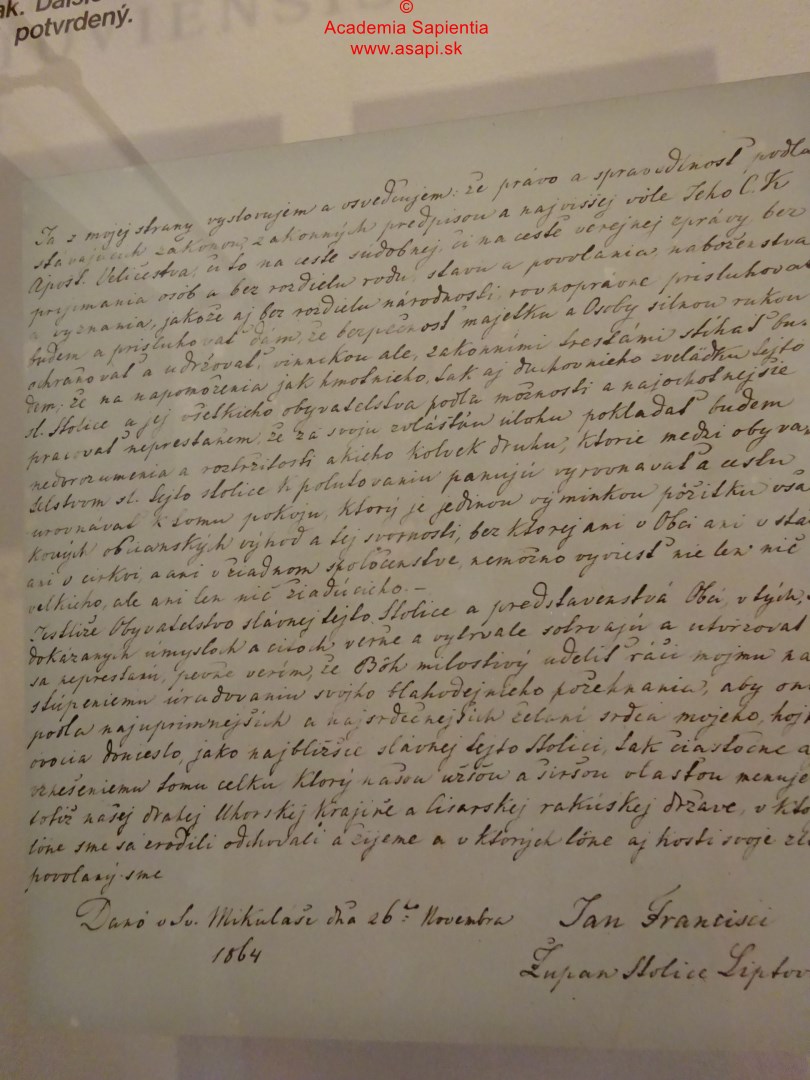 ak. Ďalšie
potvrdený.
©
Academia Sapientia
www.asapi.sk
Ja z mojej strany vyslovujem a osvedčujem: že právo a spravodlnosť podľa
stávajúcich zákonov, zákonných predpisou a najviššej vôle Jeho C. K
Apošt. Veličestva, či to na ceste súdobnej, či na ceste verejnej zprávy bez
prijímania osôb a bez rozdielu rodu, stavu a povolania, náboženstva
a vyznania, jakože aj bez rozdielu národnosti, rovnoprávne prisluhovať
budem a prisluhovať dám, že bezpečnosť majetku a Osoby silnou rukou
ochraňovať a udržovať, vinníkou ale, zákonními trestámi stíhať bu-
dem; že na napomoženia jak hmotnieho, tak aj duchovnieho zveľádku tejto
sl. Stolice a jej všetkieho obyvateľstva podľa možnosti a najochotnejšie
pracovať neprestaňem, že za svoju zvláštnu úlohu pokladať budem
nedorozumenia a roztržitosti akieho koľvek druhu, ktorie medzi obyva-
teľstvom sl. tejto stolice k poľutovaniu panujú vyrovnávať a cestu
urovnávať k tomu pokoju, ktorý je jedinou výminkou pôžitku vša
kových obcanských výhod a tej svornosti, bez ktorej ani v Obci ani v štá
ani v cirkvi, a ani v žiadnom spoločenstve, nemožno vyviesť nie len nič
velkieho, ale ani len nič žiadúcieho. –
Jestliže Obyvateľstvo slávnej tejto Stolice a predstavenstvá Obcí, v tých,
dokázaných úmysloch a citoch verne a vytrvale sotrvajú a utvrzovať
sa neprestanú, pevne verím, že Bôh milostivý udeliť ráči mojmu na
stúpeniemu úradovaniu svojho blahodejnieho požehnania, aby ono
podľa najuprimnejších a najsrdečnejších želaní srdca mojeho, hojn
ovocia doncieslo, jako najbližšie slávnej tejto Stolici, tak čiastočne a
vznešeniemu tomu celku ktorý našou užšou a širšou vlasťou menuje
totiž našej drahej Uhorskej Krajiňe a Cisarskej rakúskej države, v kto
lône sme sa zrodili odchovali a žijeme a v ktorých lône aj kosti svoje zlo
povolaný sme
Danô v Sv. Mikuláši dňa 26ho Novembra
1864
Jan Francisci
Župan stolice Liptov